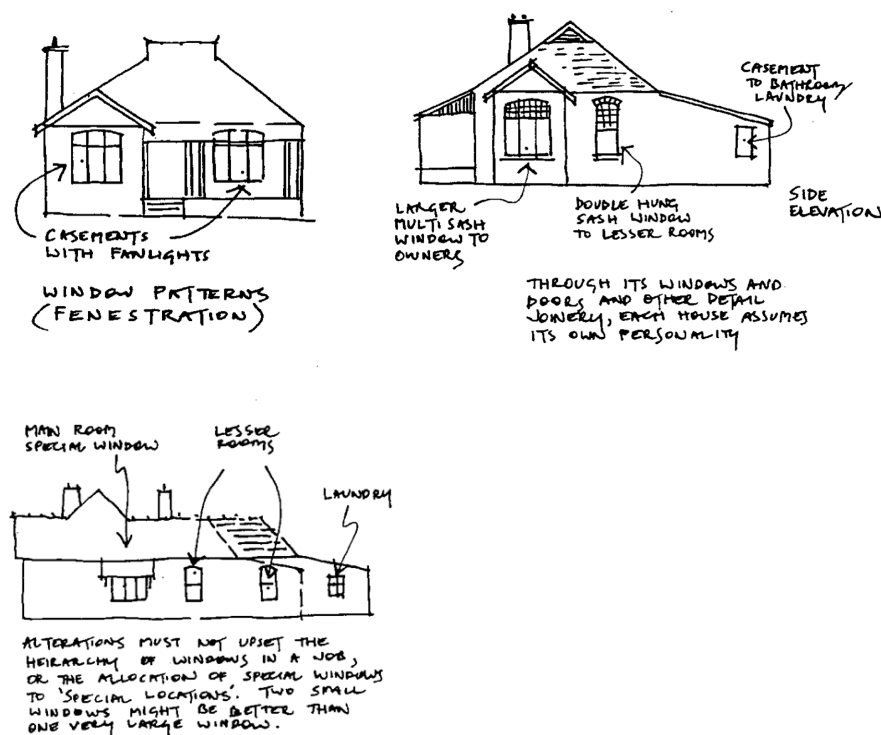 CASEMENTS
WITH FANLIGHTS
WINDOW PATTERNS
(FENESTRATION)
CASEMENT
TO BATHROOM
LAUNDRY
LARGER
MULTI SASH
WINDOW TO
OWNERS
DOUBLE HUNG
SASH WINDOW
TO LESSER ROOMS
SIDE
ELEVATION
THROUGH ITS WINDOWS AND
DOORS AND OTHER DETAIL
JOINERY, EACH HOUSE ASSUMES
ITS OWN PERSONALITY
MAIN ROOM
SPECIAL WINDOW
LESSER
ROOMS
LAUNDRY
ALTERATIONS MUST NOT UPSET THE
HEIRARCHY OF WINDOWS IN A JOB,
OR THE ALLOCATION OF SPECIAL WINDOWS
TO 'SPECIAL LOCATIONS'. TWO SMALL
WINDOWS MIGHT BE BETTER THAN
ONE VERY LARGE WINDOW.